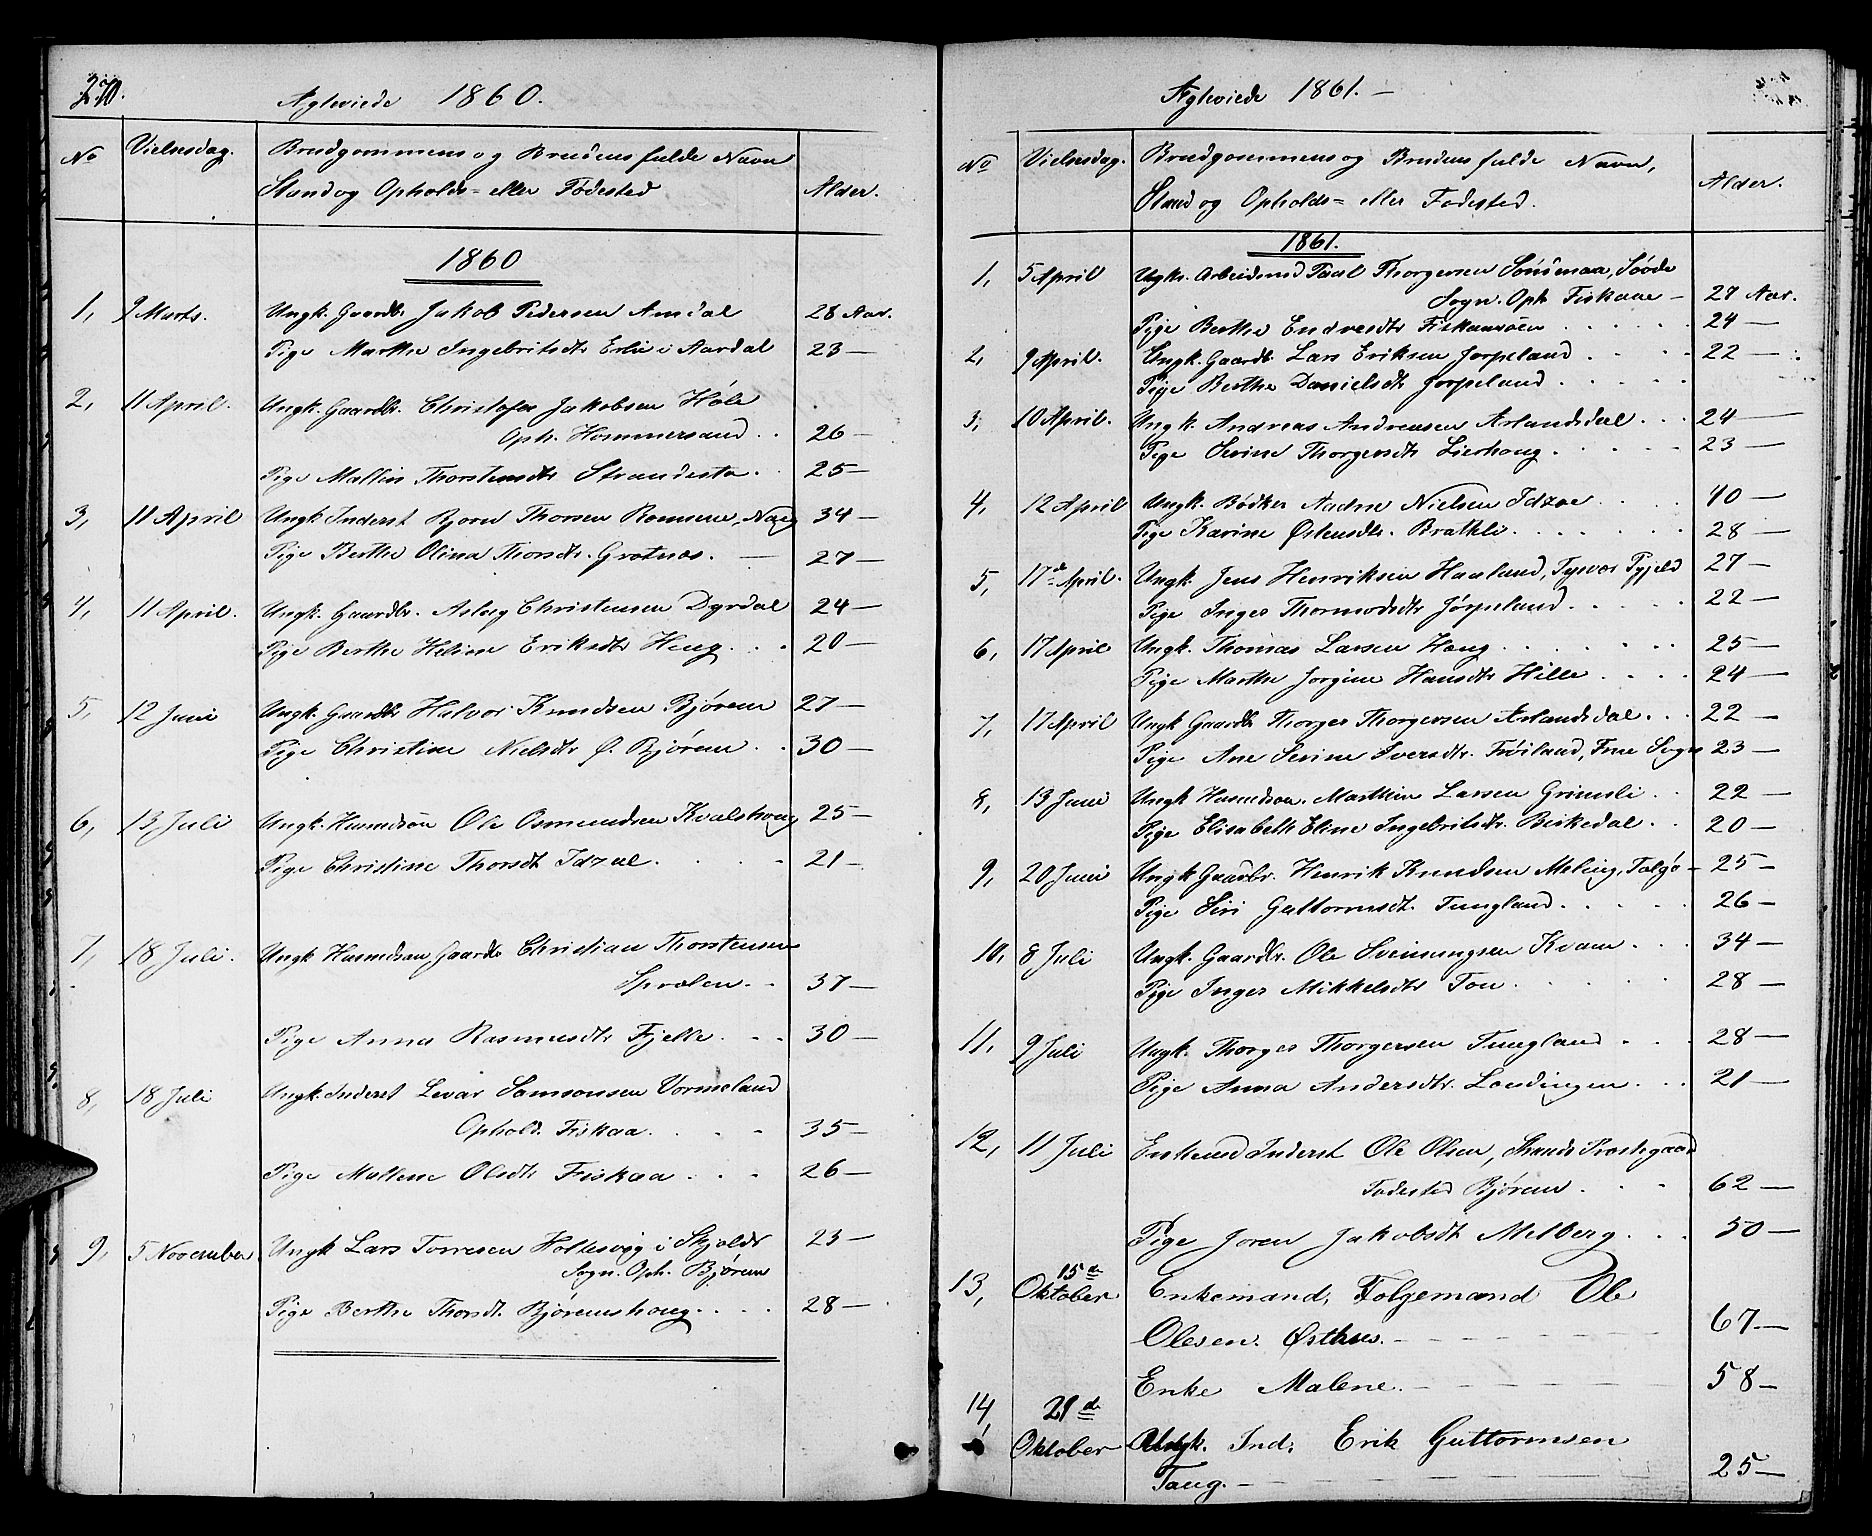 270.
Ægteviede 1860.
No Vielsesdag. Brudgommens og Brudens fulde Navn
Stand og Opholds= eller Fødested Alder.
1860
1, 9 Marts. Ungk. Gaardb. Jakob Pedersen Amdal 28 Aar.
Pige Marthe Ingebritsdtr Erli i Aardal 23 —
2, 11 April. Ungk. Gaardbr. Christofer Jakobsen Høle
Oph. Hommersand . . 26 —
Pige Mallin Thorstensdtr Strandesta . 25 —
3, 11 April Ungk Inderst Bjorn Thorsen 34 —
Pige Berthe Olina Thorsdtr. Grotnæs. — 27 —
4, 11 April. Ungk. Gaardbr. Aslag Christensen Dyrdal 24 —
Pige Berthe Heline Eriksdtr Heng . . . 20 —
5, 12 Juni Ungk. Gaardbr Halvor Knudsen Bjøreim 27 —
Pige Christine Nielsdtr Ø. Bjøreim . . 30 —
6, 13 Juli Ungk. Huusmdsøn Ole Osmundsen Kvalshoug 25 —
Pige Christine Thorsdt Idzal . . . . 21 —
7, 18 Juli. Ungk Huusmdsøn, Gaardb Christian Thorstensen
. . 37 —
Pige Anna Rasmusdtr Fjelle . . . 30 —
8, 18 Juli Ungk. Inderst Levar Samsonsen Vormeland
Ophold. Fiskaa . . . . 35 —
Pige Mallene Olsdtr Fiskaa . . . 26 —
9, 5 November Ungk Lars Torresen Holtesvig i Skjolds 23 —
Sogn. Oph. Bjøreim
Pige Berthe Thorsdt. Bjøreimshoug . . . . 28 —
Ægteviede 1861. —
No Vielsesdag. Brudgommens og Brudens fulde Navn,
Stand og Opholds= eller Fødested. Alder.
1861.
1, 5 April Ungk. Arbeidsmd Paul Thorgersen
Sogn. Oph Fiskaae — 27 Aar.
Pige Berthe Endresdtr Fiskaasøen . . . . 24 —
2, 9 April. Ungk. Gaardb. Lars Eriksen Jørpeland . . . 22 —
Pige Berthe Danielsdtr Jorpeland . . . . .
3, 10 April. Ungk. Andreas Andreasen Arlandsdal . . . 24 —
Pige Serine Thorgersdtr Lierhoug . . . . . 23 —
4, 12 April Ungk. Bødker Aadne Nielsen Idzøe . . . 40 —
Pige Karine Østensdtr. Bratkli . . . . . . 28 —
5, 17de April. Ungk. Jens Henriksen Haaland, Tysvær Pgjeld 27 —
Pige Inger Thormodsdtr Jørpeland . . . . . 22 —
6, 17 April Ungk. Thomas Larsen Houg . . . . . . 25 —
Pige Marthe Jorgine Hansdtr Hille . . . . 24 —
7, 17 April Ungk Gaardb Thorger Thorgersen Arlandsdal . . . 22 —
Pige Ane Serine Iversdtr. Frøiland, Frue Sogn 23 —
8, 13 Juni Ungk Huusmdsøn. Marthin Larsen Grimsli . . 22 —
Pige Elisabeth Eline Ingebritsdtr. Birkedal . . 20 —
9, 20 Juni Ungk Gaardbr. Henrik Knudsen Meling, Talgø — 25 —
Pige Siri Guttormsdt. Tungland . . . . . 26 —
10, 8 Juli Ungk. Gaardbr. Ole Svenungsen Kvam . . . 34 —
Pige Inger Mikkelsdtr Tou . . . . . . 28 —
11, 9 Juli Ungk. Thorger Thorgersen Tungland . . . 28 —
Pige Anna Andersdtr. Landingen . . . 21 —
12, 11 Juli Enkemd Inderst Ole Olsen, Strands Præstegaard
Fødested Bjøreim . . . 62 —
Pige Joren Jakobsdt Melberg . . . 50 —
13, 15de
Oktober Enkemand, Følgemand Ole
Olesen. Østhus. — 67 —
Enke Malene. — 58 —
14, 29de
Oktober Ungk. Ind. Erik Guttormsen
Taug. — 25 —